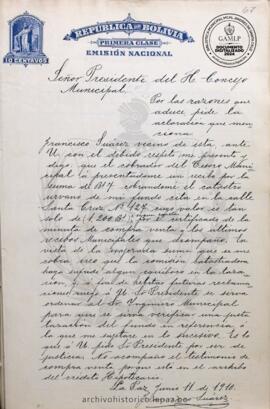 67
REPÚBLICA DE BOLIVIA
PRIMERA CLASE
EMISIÓN NACIONAL
10 CENTAVOS
GAMLP
DOCUMENTO
DIGITALIZADO
2024
Señor Presidente del H. Concejo
Municipal.
Por las razones que
aduce pide la
aclaracion que men
ciona
Francisco Suarez vecino de esta, ante
U. con el debido respeto me presento y
digo: que el cobrador del Tesoro Muni
cipal ha presentadome un recibo por la
suma de B 7 cobrandome el catastro
urbano de una finca sita en la calle
Santa Cruz Nº 127, cuyo valor es tan
solo de 1.200 Bs
certificado de la
minuta de compra venta y los ultimos
recibos Municipales que acompaño, la
vista de la expresada suma que se me
cobra creo que la comisión
haya sufrido algun equivoco en la
ción, y á fin de evitar futuras reclama
ciones ruego á U. Sr Presidente se sirva
ordenar al Sr Yngeniero Municipal
para que se sirva verificar una justa
del fundo en referencia á
lo que me sujetare en lo sucesivo. Es lo
que á U. pido Sr Presidente por ser de
justicia. No acompaño el testimonio de
compra venta porque este en el archivo
del crédito Hipotecario.
La Paz, Junio 11 de 1910.
Francisco Suarez
archivohistorico